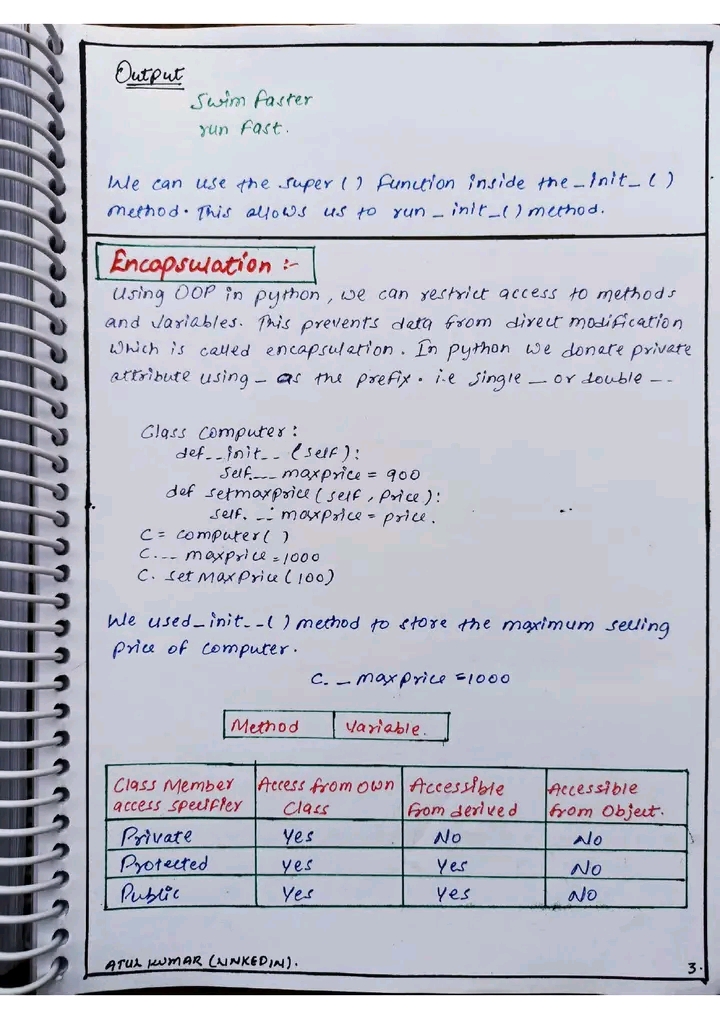 Output
Swim faster
run fast.
We can use the super() function inside the _init_()
method. This allows us to run _init_() method.
Encapsulation :-
Using OOP in python, we can restrict access to methods
and variables. This prevents data from direct modification
which is called encapsulation. In python we donate private
attribute using _ as the prefix. i.e single _ or double --
Class Computer:
def__init__(self):
self.__maxprice = 900
def setmaxprice(self, Price):
self.__maxprice = price.
C = computer()
C.__maxprice = 1000
C. setMaxPrice(100)
We used _init__() method to store the maximum selling
price of computer.
C._maxprice = 1000
Method Variable.
Class Member access specifier Access from own Class Accessible from derived Accessible from Object.
Private Yes No No
Protected Yes Yes No
Public Yes Yes No
ATUL KUMAR (LINKEDIN). 3.